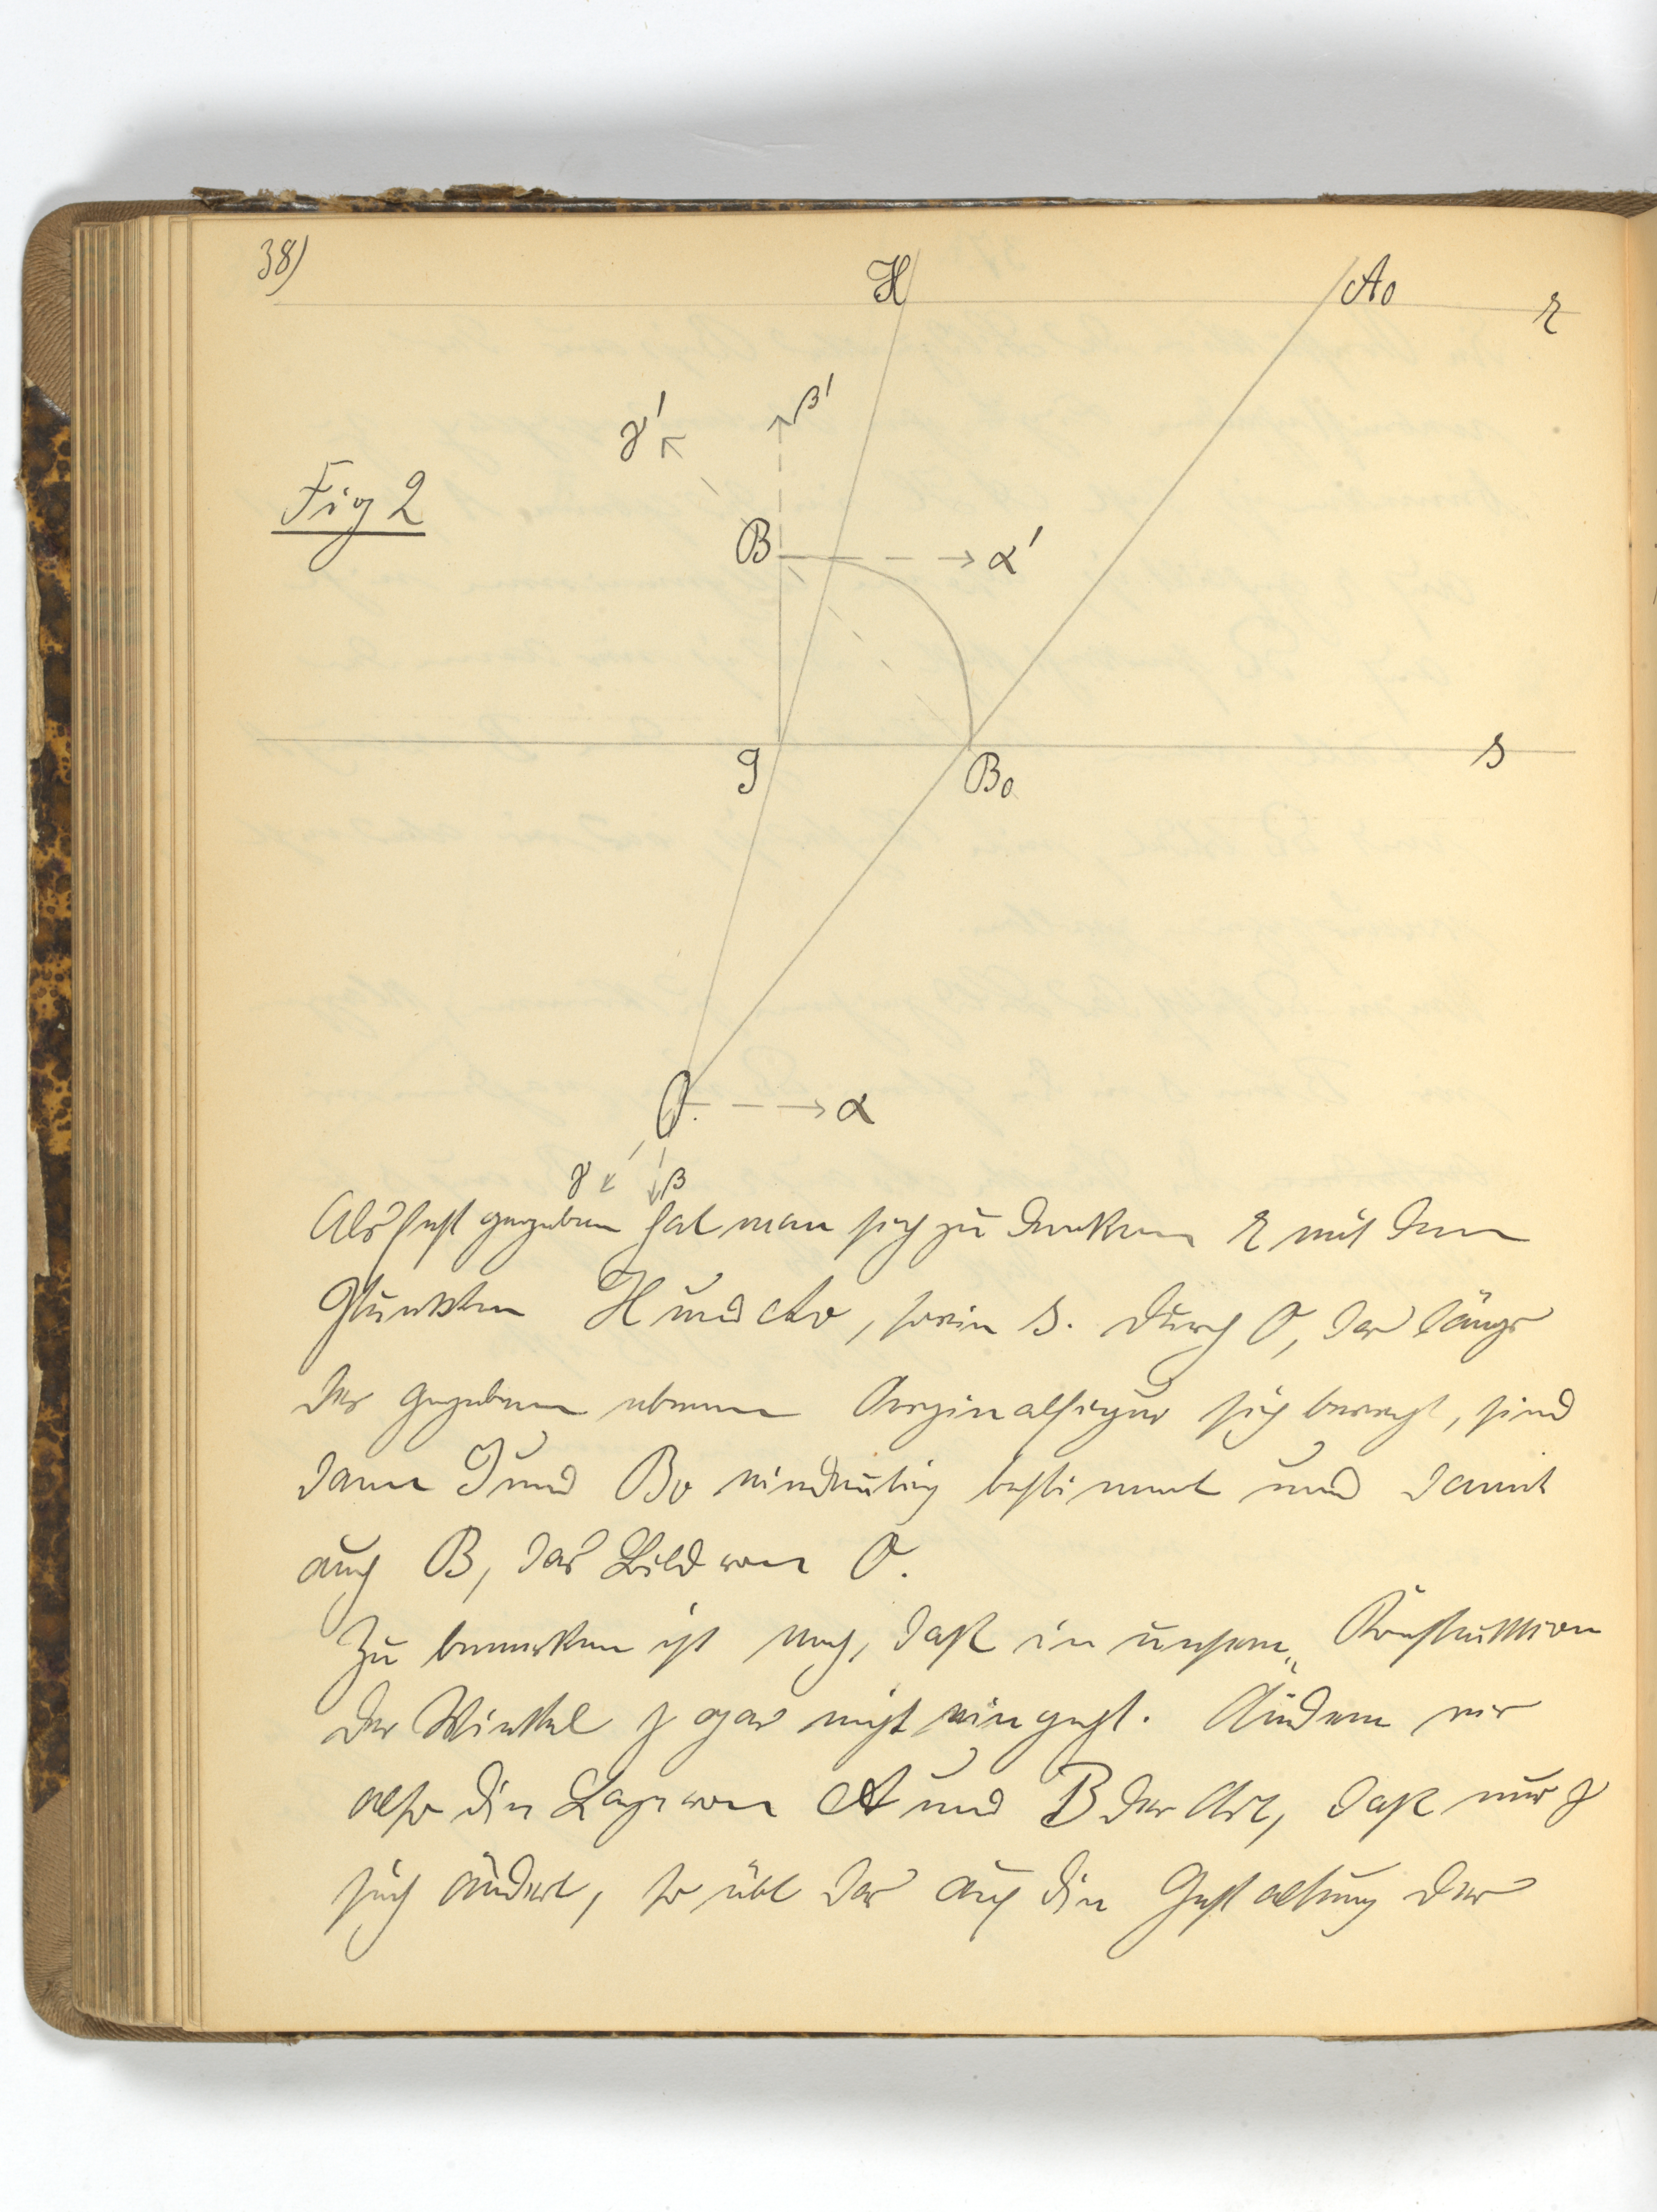 38)
H
A0
r
γ'
β'
Fig 2
B
α'
J
B0
s
O
α
γ
β
Als fest gegeben hat man sich zu denken r mit den
Punkten H und A0, sowie s. Durch O, das längs
der gegebenen ebenen Orginalfigur sich bewegt, sind
dann J und B0 eindeutig bestimmt und damit
auch B, das Bild von O.
Zu bemerken ist noch, daß in unsere Konstruktion
der Winkel γ gar nicht eingeht. Ändern wir
also die Lage von A und B der Art, daß nur γ
sich ändert, so übt das auf die Gestaltung der